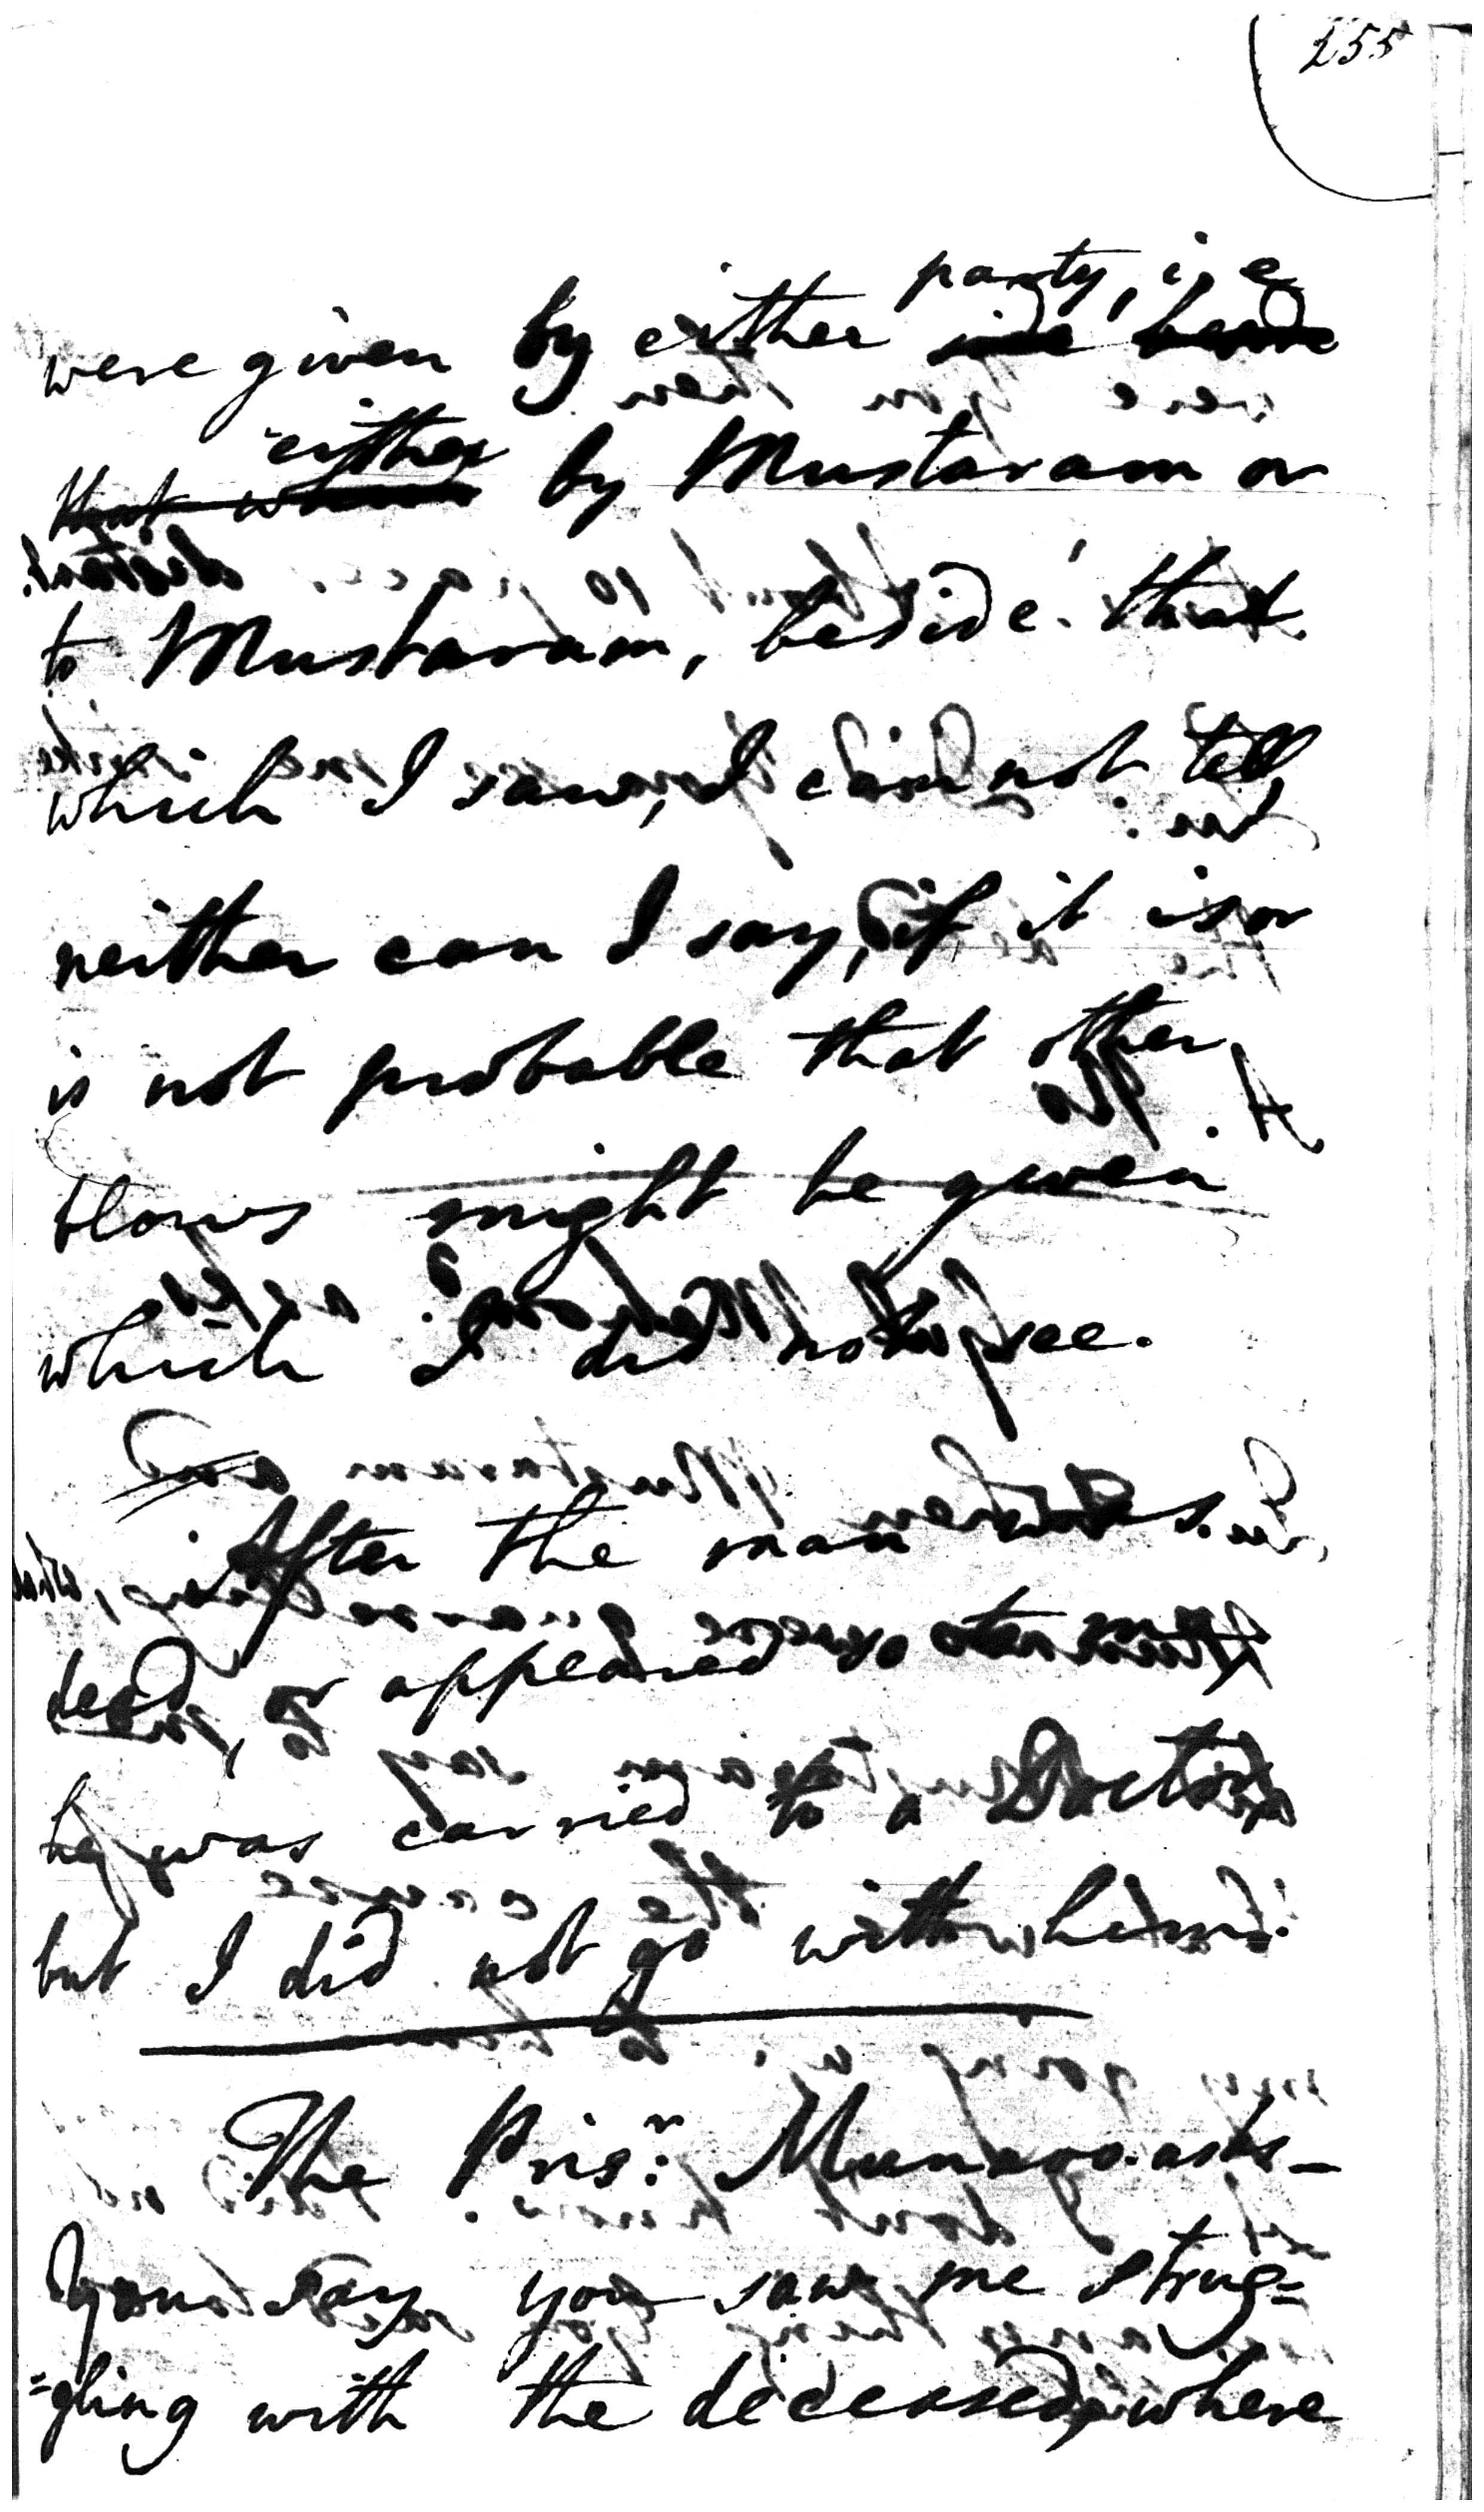 255
party, i, e
were given by either
either
that by Mustaram or
to Mustaram, beside that
which I saw, I can not tell,
neither can I say, if it is or
is not probable that other
blows might be given
which I did not see.
After the man was
dead, or appeared so
he was carried to a Doctor
but I did not go with him.
The Prisr. asks —
You say you saw me strug=
=gling with the deceased, where